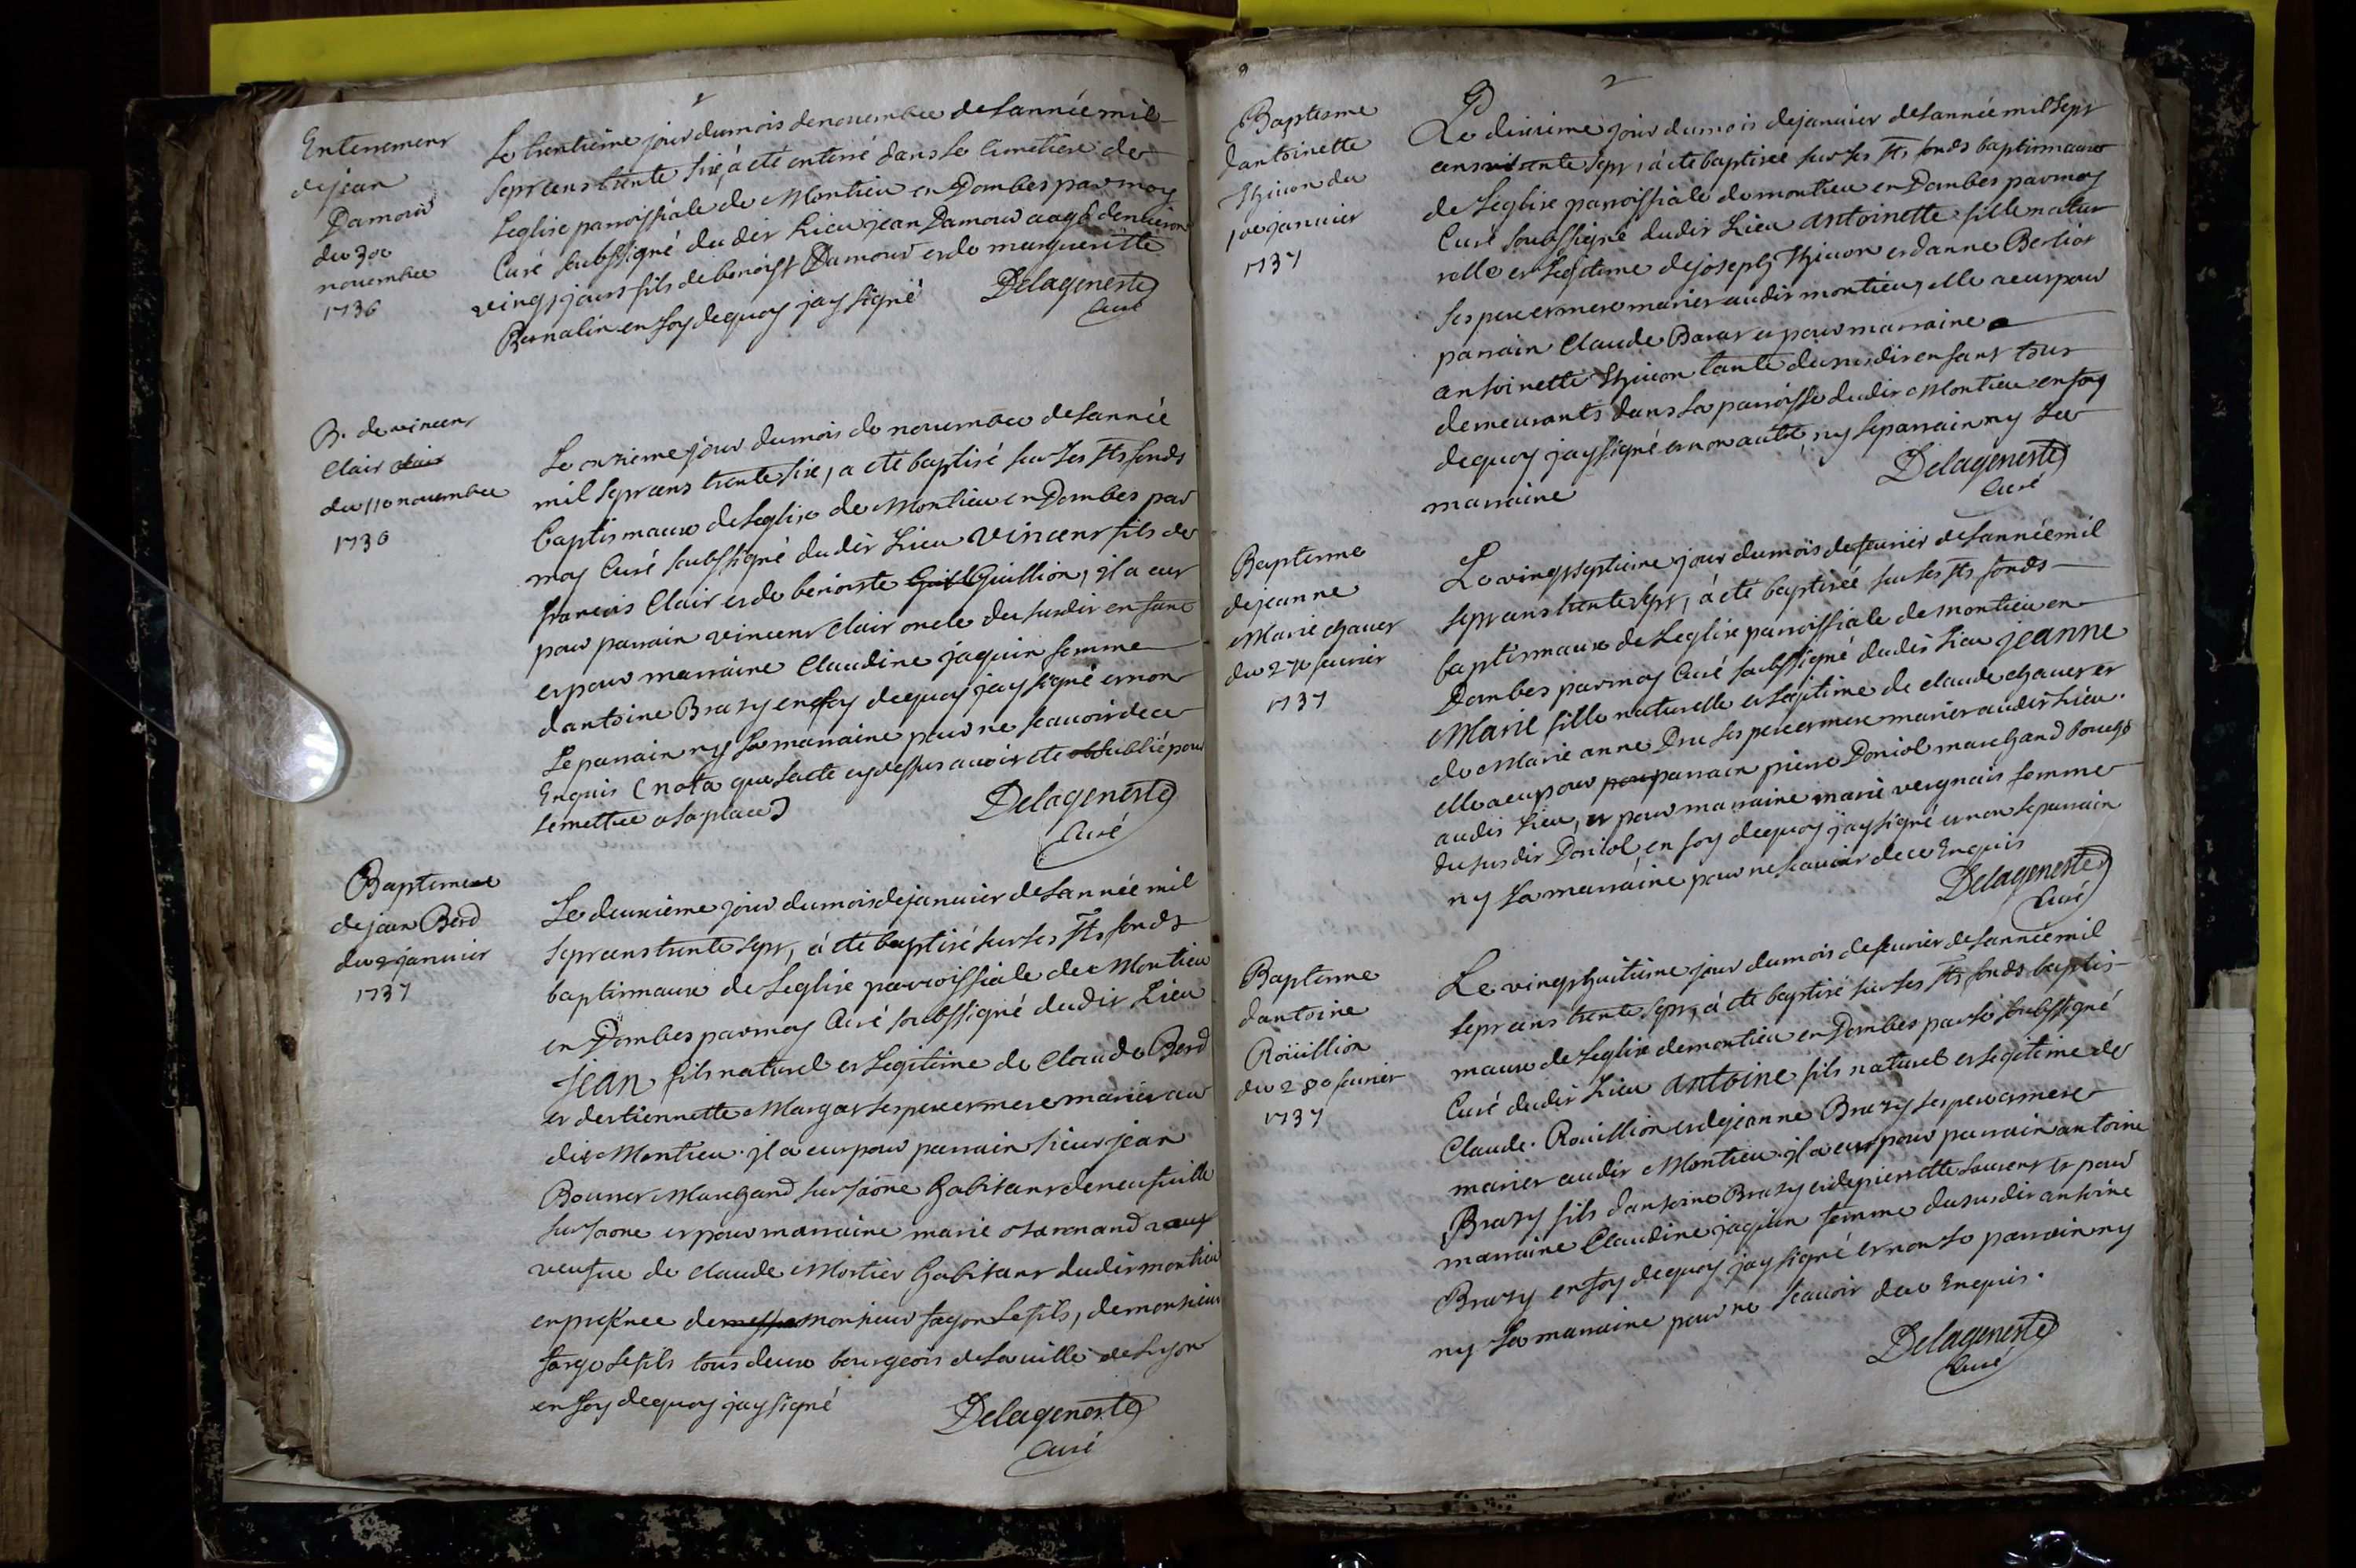 Enterrement
de jean
Damour
du 30e
novembre
1736
Le trentième jour du mois de novembre de L'année mil
sept cens trente six, à eté enterré dans Le Cimetiere de
Leglise parroissiale de Montieu en Dombes par moy
Curé soubssigné dudit Lieu jean Damour aagé d'environ
vingt jours fils de benoist Damour et de marguerite
Bernalin en foy de quoy jay signé
Delageneste
Curé
B. de vincent
Clair clair
du 11e novembre
1736
Le onzieme jour du mois de novembre de L'année
mil sept cens trente six, a eté baptisé sur Les Sts fonds
baptismaux de Leglise de Montieu en Dombes par
moy Curé soubssigné dudit Lieu vincent fils de
francois Clair et de benoiste Guill Guillion, il a eut
pour parrain vincent Clair oncle du susdit enfant
et pour marraine Claudine jaquin femme
d'antoine Brazy en foy de quoy jay signé et non
Le parrain ny La marraine pour ne scavoir de ce
Enquis (nota que L'acte cy dessus avoir eté oublié pour
Le mettre a sa place)
Delageneste
Curé
Baptême
de jean Berd
du 2 janvier
1737
Le deuxième jour du mois de janvier de L'année mil
sept cens trente sept, à eté baptisé sur Les Sts fonds
baptismaux de Leglise parroissiale de Montieu
en Dombes par moy Curé soubssigné dudit Lieu
jean fils naturel et Legitime de Claude Berd
et d'estiennette Margot ses pere et mere mariés au
dit Montieu. il a eut pour parrain sieur jean
Bonnet Marchand sur saone habitant de neufville
sur saone et pour marraine marie veuf
veufve de Claude Mortier habitant dudit montieu
en presence de messire monsieur fayon Le fils, de monsieur
farge Le fils tous deux bourgeois de La ville de Lyon
en foy de quoy jay signé
Delageneste
Curé
2
Baptesme
d'antoinette
Thivon du
10e janvier
1737
Le dixième jour du mois de janvier de L'année mil sept
cens trente sept, à eté baptisée sur Les Sts fonds baptismaux
de Leglise parroissiale de montieu en Dombes par moy
Curé soubssigné dudit Lieu antoinette fille natu-
relle et Legitime de joseph Thivon et d'anne Berliot
ses pere et mere mariés audit montieu, elle a eut pour
parrain Claude Bavat et pour marraine
antoinette Thivon tante du susdit enfant tous
demeurants dans La parroisse dudit Montieu en foy
de quoy jay signé et non autre, ny Le parrain ny La
marraine
Delageneste
Curé
Baptesme
de jeanne
Marie chavet
du 27e fevrier
1737
Le vingt septieme jour du mois de fevrier de L'année mil
sept cens trente sept, à eté baptisée sur Les Sts fonds
baptismaux de Leglise parroissiale de montieu en
Dombes par moy Curé soubssigné dudit Lieu jeanne
Marie fille naturelle et Legitime de claude chavet et
de Marie anne Dru ses pere et mere mariés audit Lieu.
elle a eu pour parrain pierre Doriol marchand
audit Lieu, et pour marraine marie vergnais femme
du susdit Doriol, en foy de quoy jay signé et non Le parrain
ny La marraine pour ne scavoir de ce Enquis
Delageneste
Curé
Baptesme
d'antoine
Roüillion
du 28e fevrier
1737
Le vingt huitieme jour du mois de fevrier de L'année mil
sept cens trente sept, à eté baptisé sur Les Sts fonds baptis-
maux de Leglise de montieu en Dombes par Le soubssigné
Curé dudit Lieu antoine fils naturel et Legitime de
Claude Roüillion et de jeanne Brazy ses pere et mere
mariés audit Montieu. il a eut pour parrain antoine
Brazy fils d'antoine Brazy et de pierrette Laurent et pour
marraine Claudine jaquin femme du susdit antoine
Brazy en foy de quoy jay signé et non Le parrain ny
ny La marraine pour ne scavoir de ce Enquis.
Delageneste
Curé